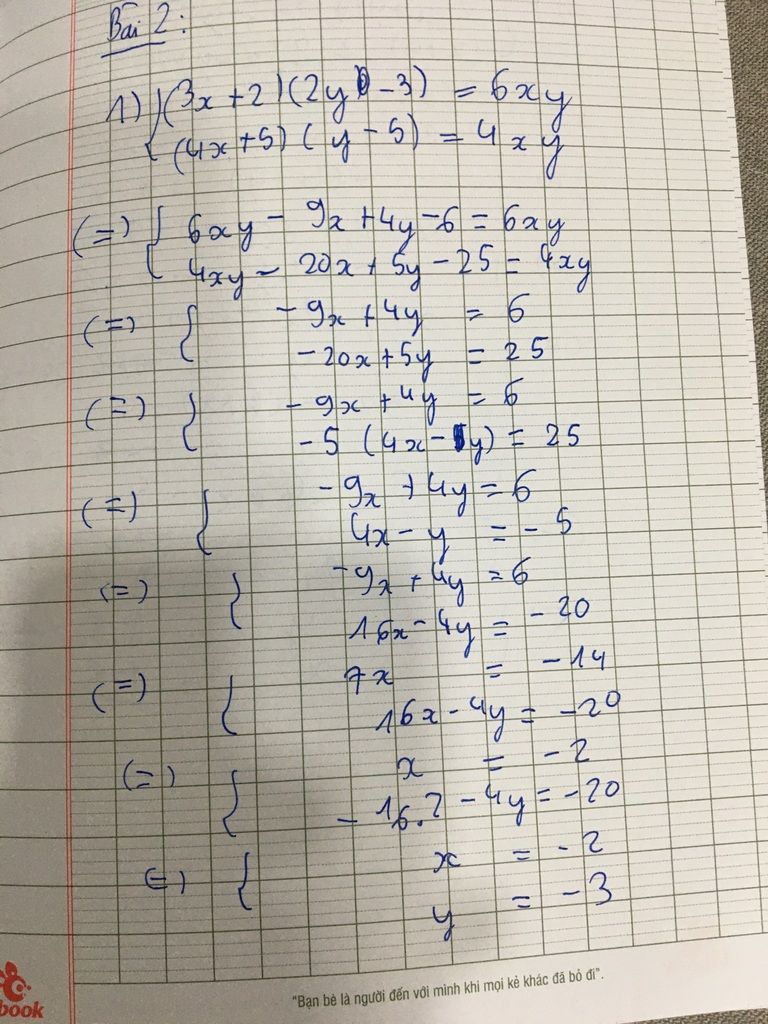 Bài 2:
1) { (3x+2)(2y-3) = 6xy
(4x+5)(y-5) = 4xy
(=) { 6xy - 9x + 4y - 6 = 6xy
4xy - 20x + 5y - 25 = 4xy
(=) { -9x + 4y = 6
-20x + 5y = 25
(=) { -9x + 4y = 6
-5 (4x - y) = 25
(=) { -9x + 4y = 6
4x - y = -5
(=) { -9x + 4y = 6
16x - 4y = -20
(=) { 7x = -14
16x - 4y = -20
(=) { x = -2
-16.2 - 4y = -20
(=) { x = -2
y = -3
book
"Bạn bè là người đến với mình khi mọi kẻ khác đã bỏ đi".